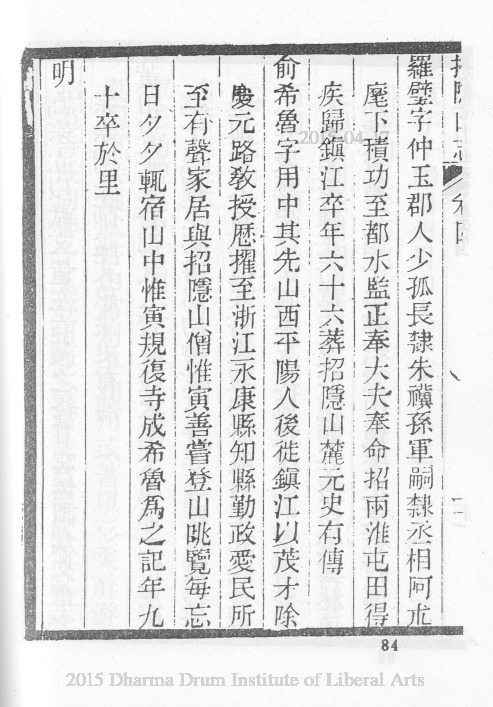 招隱山志
卷四
羅璧字仲玉郡人少孤長隸朱禩孫軍嗣隸丞相阿朮
麾下積功至都水監正奉大夫奉命招兩淮屯田得
疾歸鎮江卒年六十六葬招隱山麓元史有傳
俞希魯字用中其先山西平陽人後徙鎮江以茂才除
慶元路教授歷擢至浙江永康縣知縣勤政愛民所
至有聲家居與招隱山僧惟寅善嘗登山眺覽每忘
日夕夕輒宿山中惟寅規復寺成希魯爲之記年九
十卒於里
明
84
2015 Dharma Drum Institute of Liberal Arts